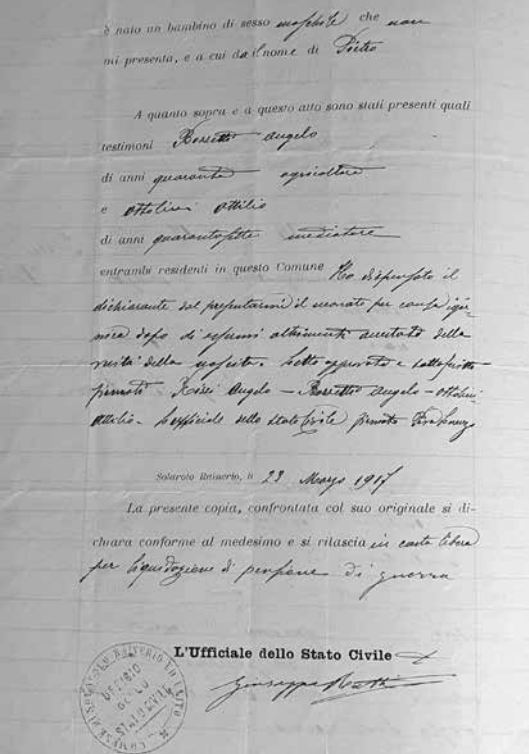 è nato un bambino di sesso maschile che non
mi presenta, e a cui dà il nome di Pietro
A quanto sopra e a questo atto sono stati presenti quali
testimoni Bossetto Angelo
di anni quaranta agricoltore
e Ottolini Attilio
di anni quarantasette mediatore
entrambi residenti in questo Comune Ho dispensato il
dichiarante dal presentarmi il neonato per causa igie-
nica dopo di essermi altrimenti accertato della
verità della nascita. Letto approvato e sottoscritto
firmato Angelo – Bossetto Angelo – Ottolini
Attilio – L'ufficiale dello stato Civile firmato
Solarolo Rainerio, li 23 Marzo 1917
La presente copia, confrontata col suo originale si di-
chiara conforme al medesimo e si rilascia in carta libera
per liquidazione di pensione di guerra
L'Ufficiale dello Stato Civile
Giuseppe
UFFICIO DELLO STATO CIVILE